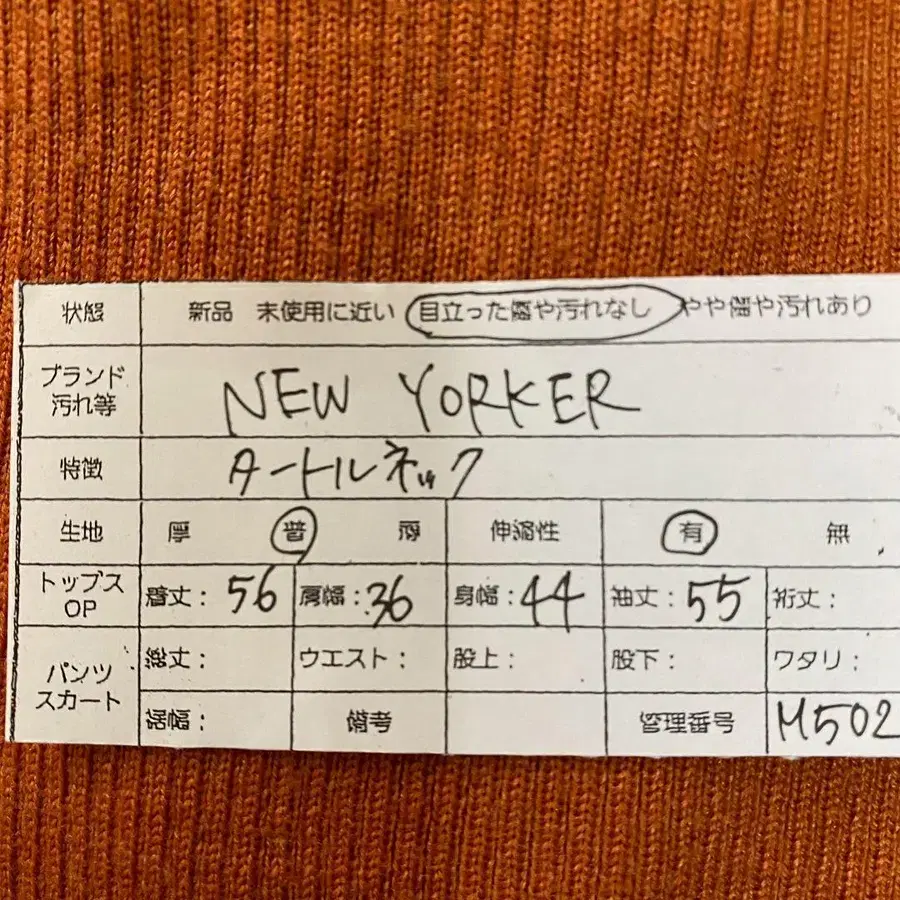 状態 新品 未使用に近い 目立った傷や汚れなし やや傷や汚れあり
ブランド
汚れ等
NEW YORKER
特徴 タートルネック
生地 厚 普 薄 伸縮性 有 無
トップス
OP
着丈: 56 肩幅: 36 身幅: 44 袖丈: 55 裄丈:
パンツ
スカート
総丈: ウエスト: 股上: 股下: ワタリ:
裾幅: 備考 管理番号 M502